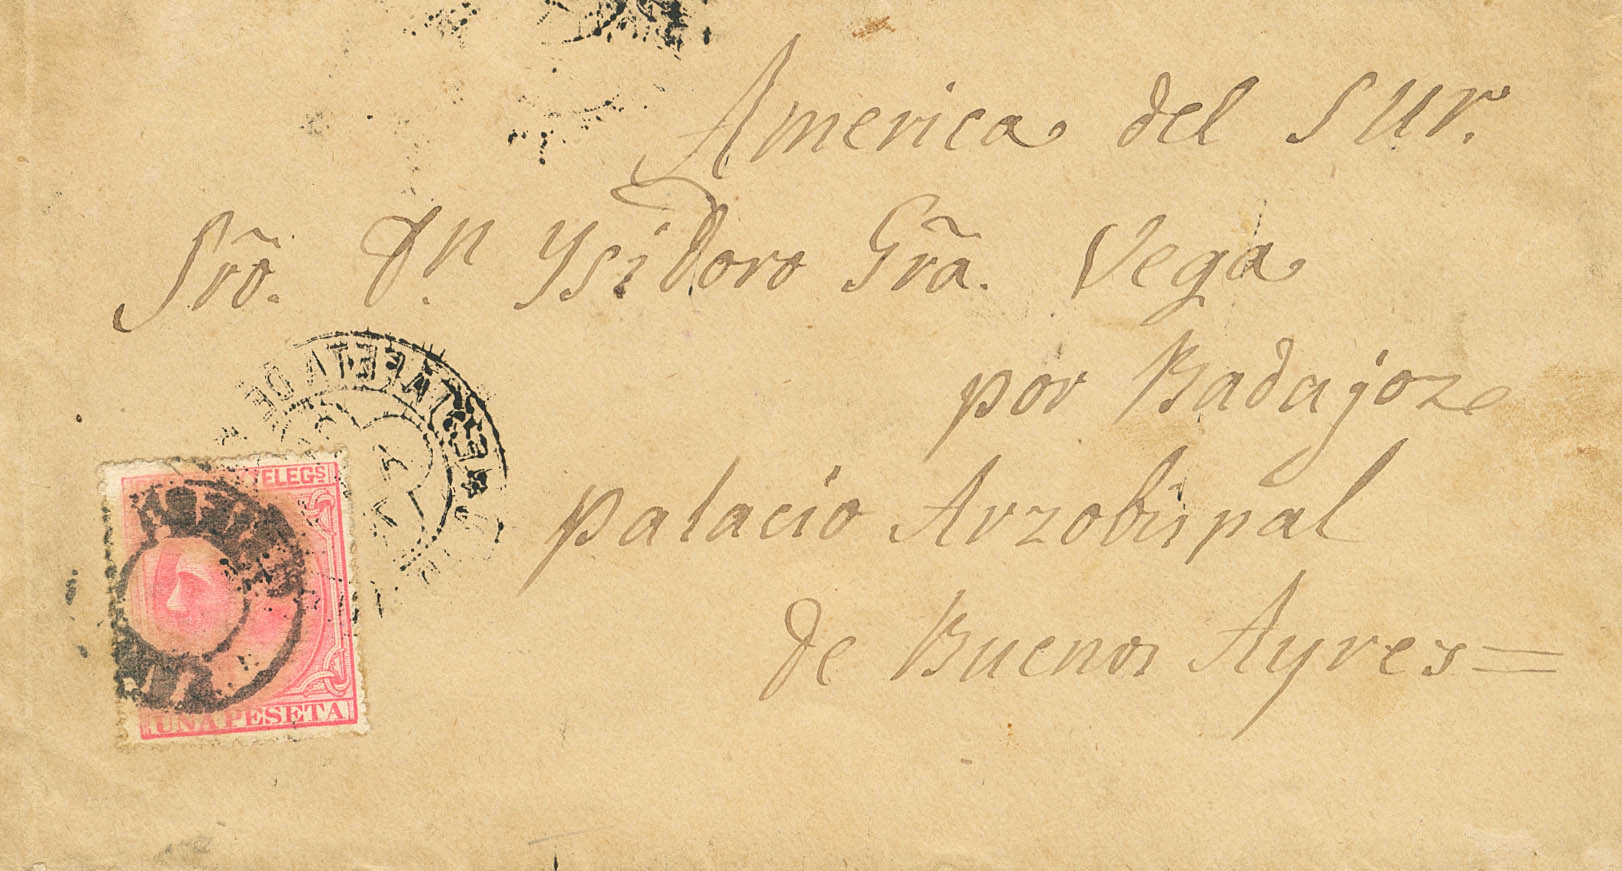 America del Sur.
Srõ. Dn. Ysidoro Grã. Vega
por Badajoz
palacio Arzobispal
de Buenos Ayres=
ELEGS
UNA PESETA